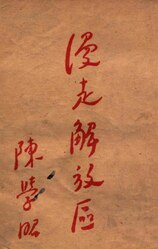 漫走解放區
陳學昭